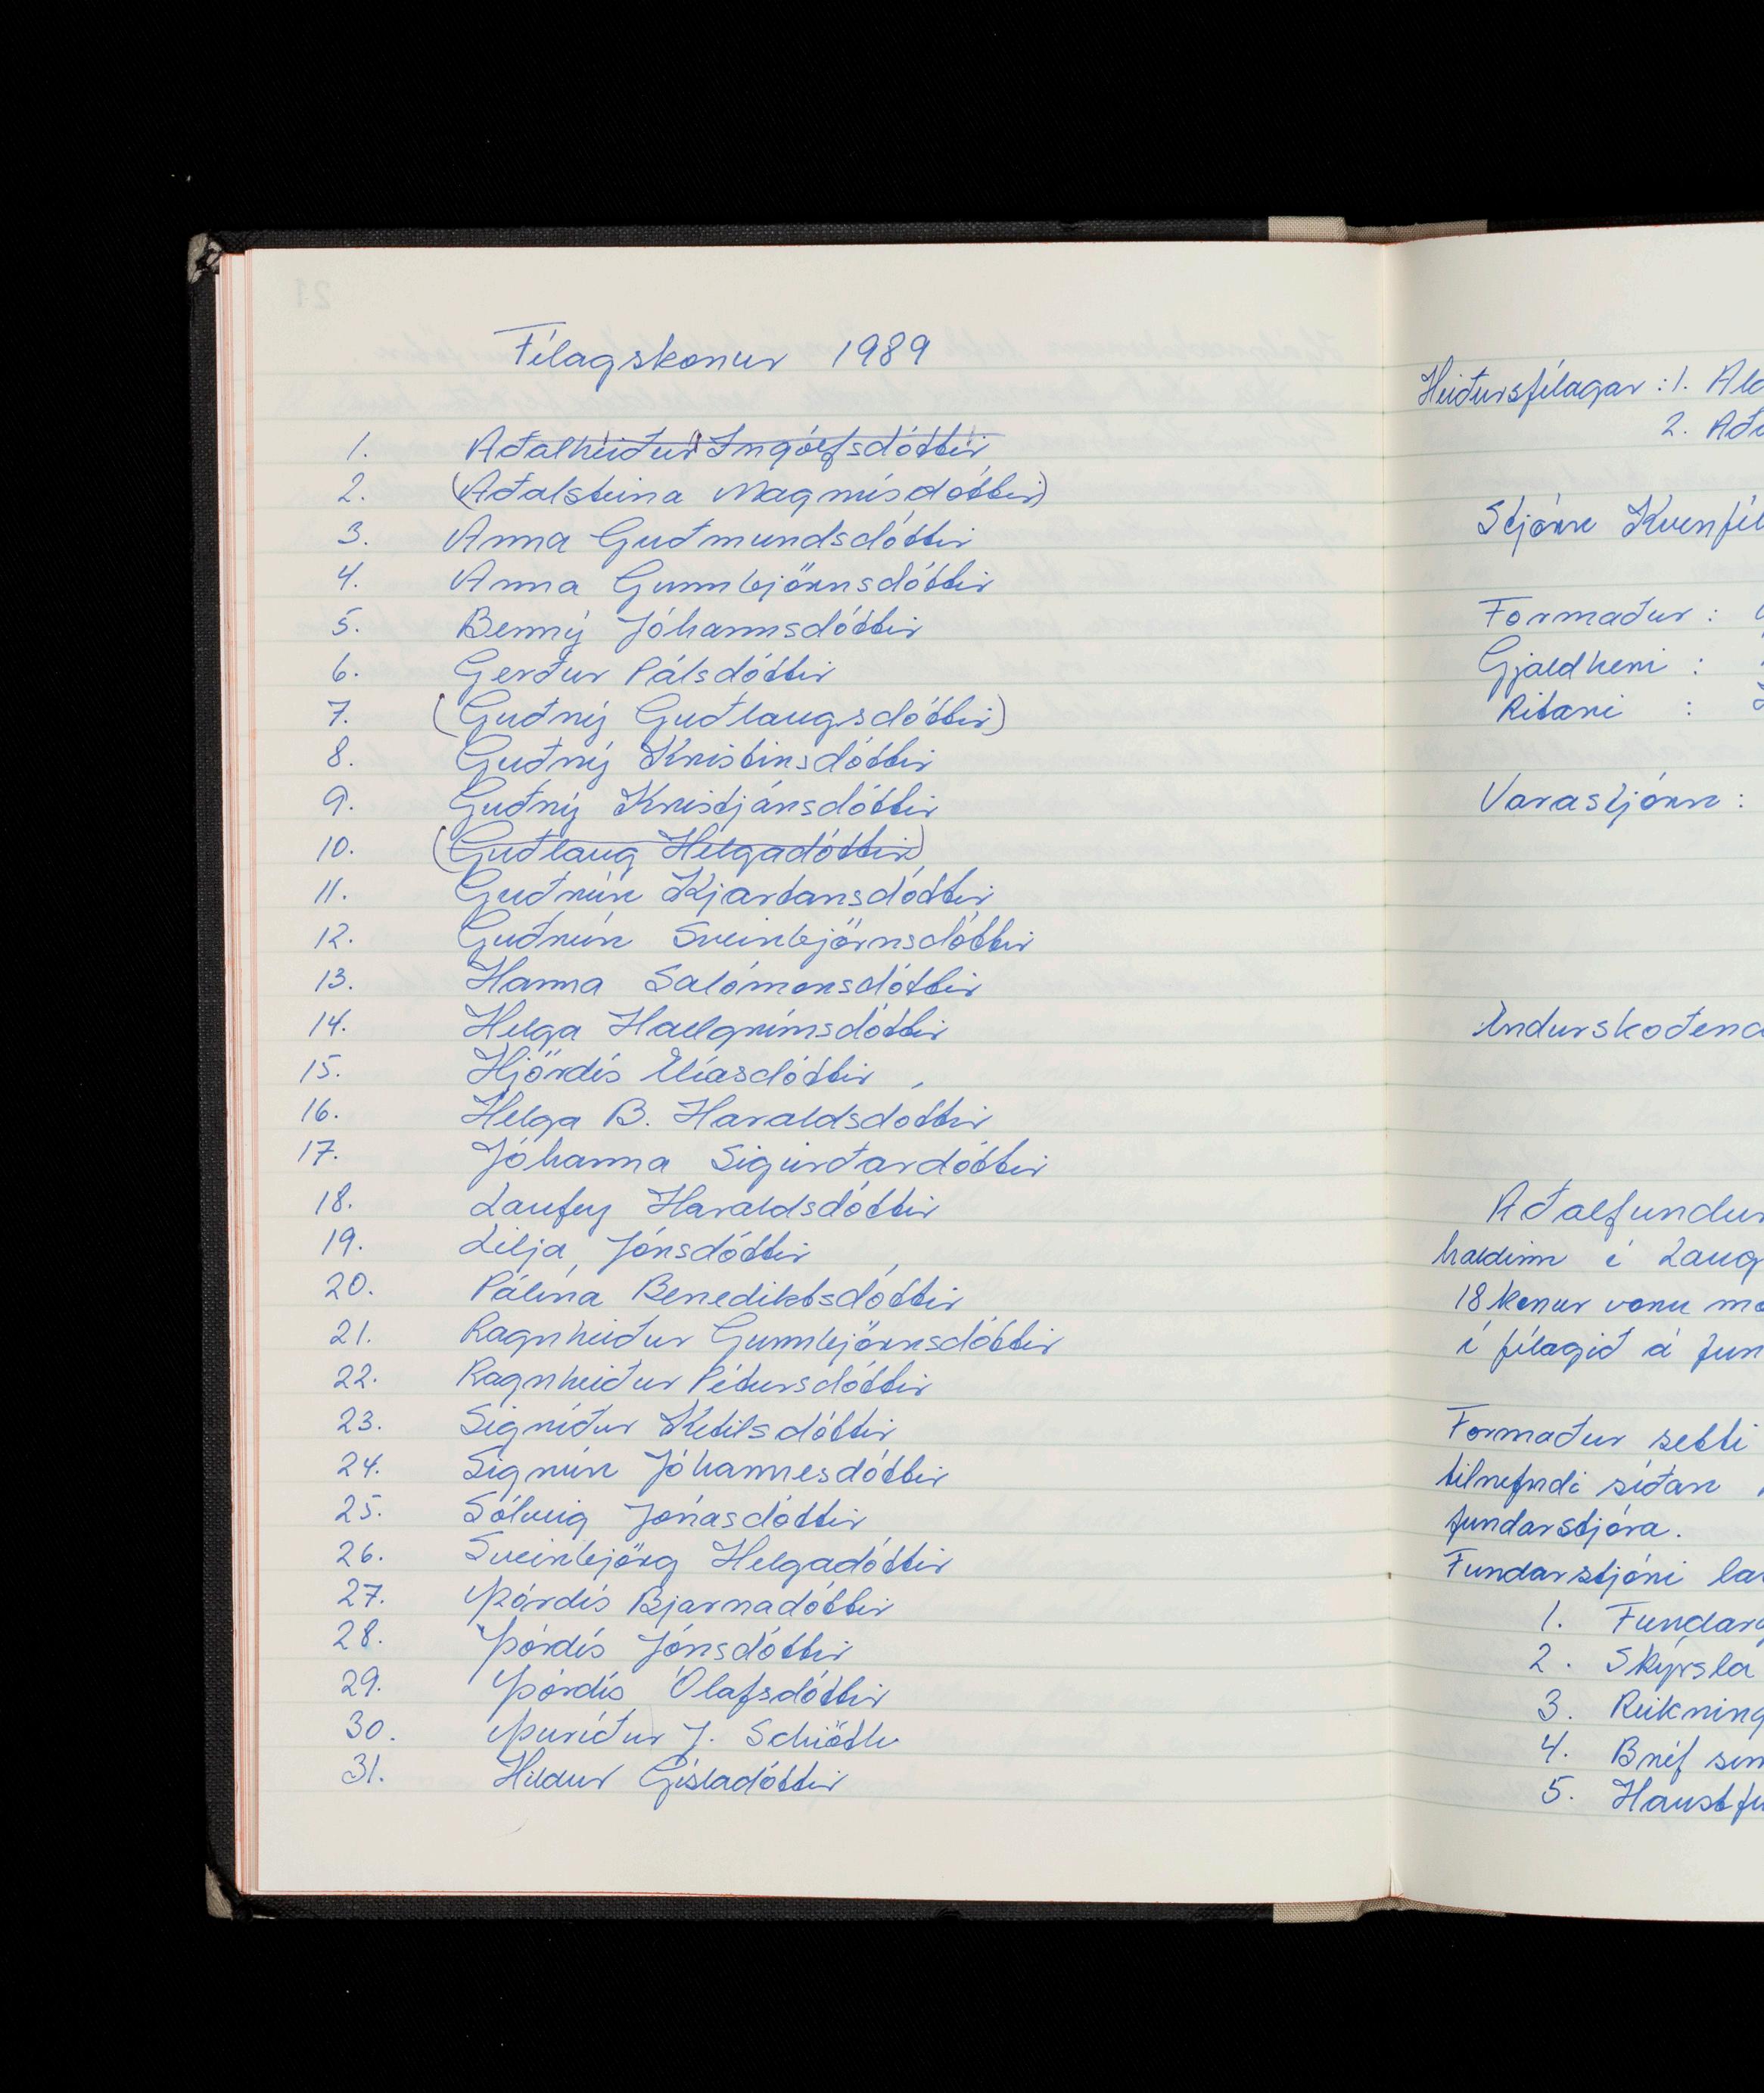 Félagskonur 1989
1. Aðalheiður Ingólfsdóttir
2. (Aðalsteina Magnúsdóttir)
3. Anna Guðmundsdóttir
4. Anna Gunnbjörnsdóttir
5. Benný Jóhannsdóttir
6. Gerður Pálsdóttir
7. (Guðný Guðlaugsdóttir)
8. Guðný Kristinsdóttir
9. Guðný Kristjánsdóttir
10. (Guðlaug Helgadóttir)
11. Guðrún Kjartansdóttir
12. Guðrún Sveinbjörnsdóttir
13. Hanna Salómonsdóttir
14. Helga Hallgrímsdóttir
15. Hjördís Elíasdóttir
16. Helga B. Haraldsdóttir
17. Jóhanna Sigurðardóttir
18. Laufey Haraldsdóttir
19. Lilja Jónsdóttir
20. Pálína Benediktsdóttir
21. Ragnheiður Gunnbjörnsdóttir
22. Ragnheiður Pétursdóttir
23. Sigríður Ketilsdóttir
24. Sigrún Jóhannesdóttir
25. Sólveig Jónasdóttir
26. Sveinbjörg Helgadóttir
27. Þórdís Bjarnadóttir
28. Þórdís Jónsdóttir
29. Þórdís Ólafsdóttir
30. Þuríður J. Schiöth
31. Hildur Gísladóttir
Heiðursfélagar : 1. Al
2. Að
Stjórn Kvenfél
Formaður :
Gjaldkeri :
Ritari :
Varastjórn :
Endurskoðend
Aðalfundur
haldinn í Laug
18 konur voru mæ
í félagið á fun
Formaður setti
tilnefndi síðan
fundarstjóra.
Fundarstjóri la
1. Fundarg
2. Skýrsla
3. Reikning
4. Bréf sem
5. Haustfu